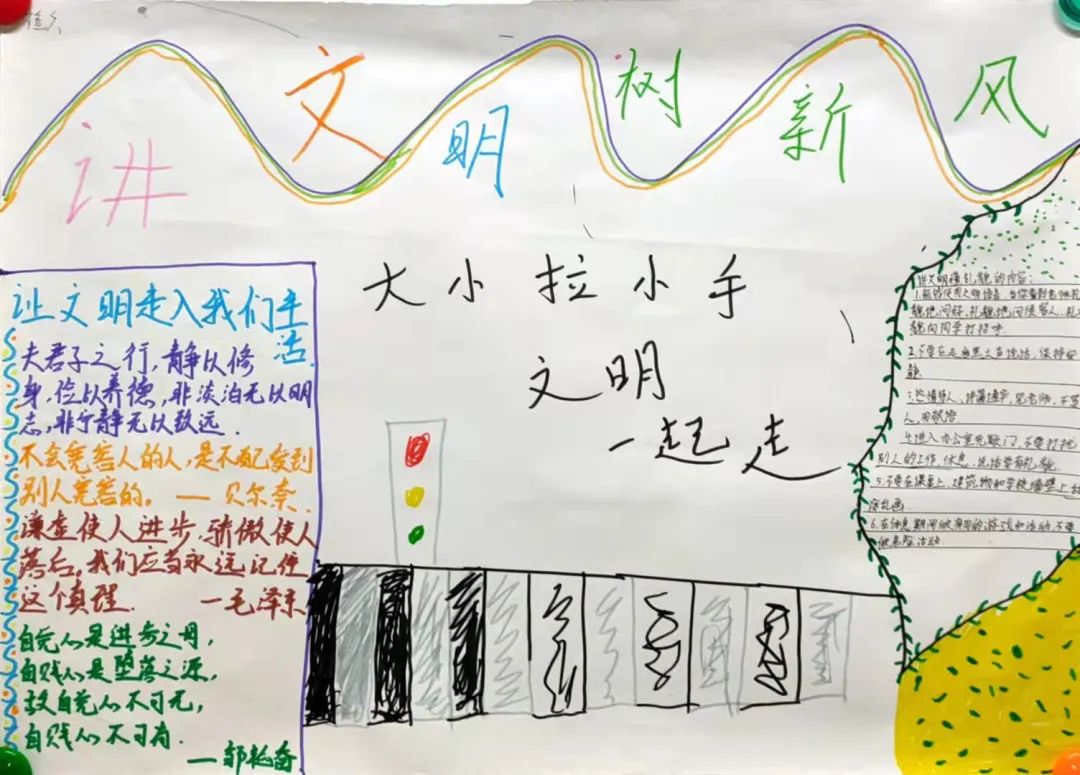 讲文明树新风
大小拉小手
文明
一起走
让文明走入我们生活
夫君子之行，静以修
身，俭以养德，非淡泊无以明
志，非宁静无以致远.
不会宽容人的人，是不配受到
别人宽容的。 —— 贝尔奈
谦虚使人进步，骄傲使人
落后，我们应当永远记住
这个真理. —毛泽东
自觉心是进步之母，
自贱心是堕落之源，
故自觉心不可无，
自贱心不可有.
——邹韬奋
讲文明懂礼貌的内容：
1.能够使用文明语言，当你看到老师礼
貌地问好，礼貌地问候客人，礼
貌向同学打招呼.
2.不要在走廊里大声说话，保持安
静
4.进入办公室先敲门，不要打扰
别人的工作、休息，说话要有礼貌.
5.不要在课桌上、建筑物和学校墙壁上乱
涂乱画.
6.在休息期间做有用的游戏和活动，不要
做危险活动.